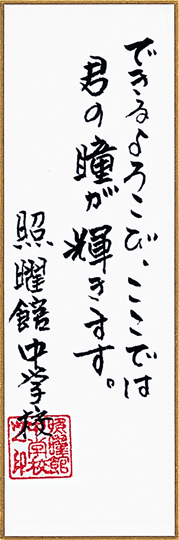 できるよろこび、ここでは
君の瞳が輝きます。
照曜館中学校
照曜館
中学校
之印